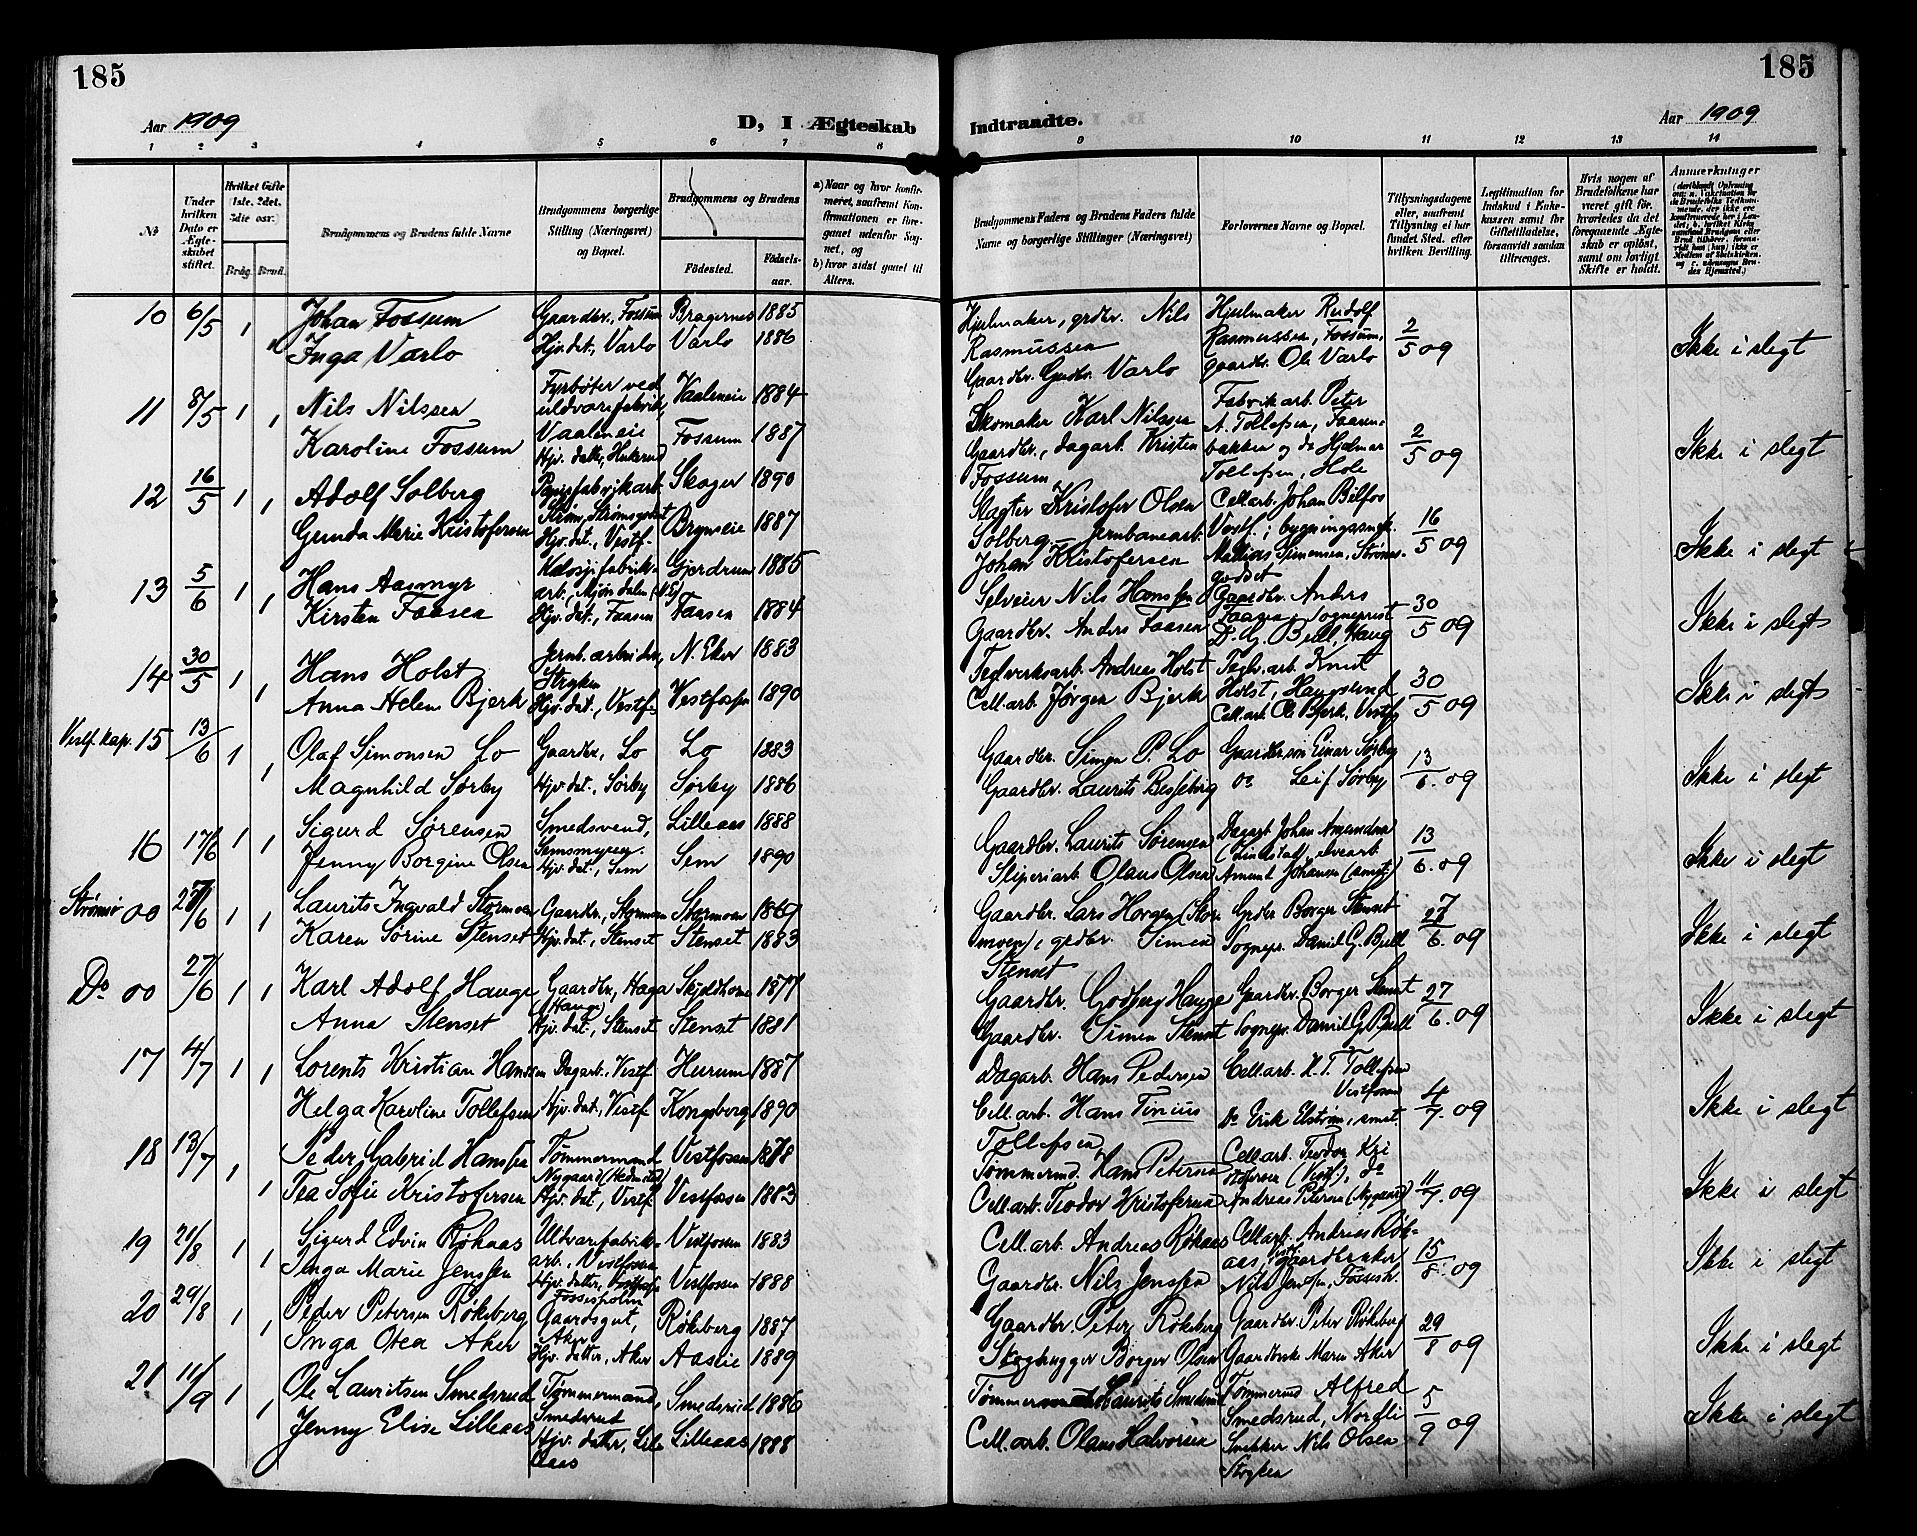 185
185
Aar 1909
D, I Ægteskab
Indtraadte.
Aar 1909
1 2 3 4 5 6 7 8
9 10 11 12 13 14
No
Under hvilken Dato er Ægteskabet stiftet.
Hvilket Gifte (1ste, 2det, 3die osv.)
Brdg. Brud.
Brudgommens og Brudens fulde Navne
Brudgommens borgerlige Stilling (Næringsvei) og Bopæl.
Brudgommens og Brudens
Födested.
Födselsaar.
a) Naar og hvor konfirmeret, saafremt Konfirmationen er foregaaet udenfor Sognet, og
b) hvor sidst gaaet til Alters.
Brudgommens Faders og Brudens Faders fulde Navne og borgerlige Stillinger (Næringsvei)
Forlovernes Navne og Bopæl.
Tillysningsdagene eller, saafremt Tillysning ei har fundet Sted, efter hvilken Bevilling.
Legitimation for Indskud i Enkekassen samt for Giftetilladelse, forsaavidt saadan tiltrænges.
Hvis nogen af Brudefolkene har været gift för, hvorledes da det foregaaende Ægteskab er oplöst, samt om lovligt Skifte er holdt.
Anmærkninger
10 6/5 1 Johan Fossum Gaardbr., Fossum Bragernes 1885
" Inga Varlo Hjv. dat., Varlo Varlo 1886
Hjulmaker, grdbr. Nils Rasmussen
Gaardbr. Gudbr. Varlo
Hjulmaker Rudolf Rasmussen, Fossum, gaardbr. Ole Varlo
2/5 09 Ikke i slegt
11 8/5 1 1 Nils Nilssen Fyrbøter ved uldvarefabrik, Vaaleneie Vaaleneie 1884
Karoline Fossum Hjv. datter, Hukerud Fossum 1887
Skomaker Karl Nilssen
Gaardbr., dagarb. Kristen Fossum
Fabrikarb. Peter A. Tollefsen, Faarenbakken og do Hjelmar Tollefsen, Hole
2/5 09 Ikke i slegt
12 16/5 1 1 Adolf Solberg Papirfabrikarb. Skoger 1890
Gunda Marie Kristofersen Hjv. dat., Vestf. Brynseie 1887
Slagter Kristofer Olsen Solberg. – Jernbanearb. Johan Kristofersen
Cell.arb. Johan Bilfos Vestf., bygningssnek. Mathias Simensen, Strømsgodset
16/5 09 Ikke i slegt
13 5/6 1 1 Hans Aasmyr arb., Mjøndalen (N.E.) Gjerdrum 1885
Kirsten Faasen Hjv. dat., Faasen Faasen 1884
Selveier Nils Hanssen
Gaardbr. Anders Faasen
Gaardbr. Anders Faasen, sogneprest D. G. Bull, Haug
30/5 09 Ikke i slegt
14 30/5 1 1 Hans Holst Jernb. arbeider, Stryken N. Eker 1883
Anna Helene Bjerk Hjv. dat., Vestf. Vestfossen 1890
Teglverksarb. Andreas Holst
Cell.arb. Jørgen Bjerk
Teglv. arb. Knut Holst, Haugslund
Cell.arb. Ole Bjerk, Vestf.
30/5 09 Ikke i slegt
Vestf. kap. 15 13/6 1 1 Olaf Simonsen Lo Gaardbr., Lo Lo 1883
Magnhild Sørby Hjv. dat., Sørby Sørby 1886
Gaardbr. Simon P. Lo
Gaardbr. Laurits Besseberg
Gaardbr.søn Einar Sørby
do Leif Sørby
13/6. 09 Ikke i slegt
16 17/6 1 1 Sigurd Sørensen Smedsvend, Semsmyren. Lilleaas 1888
Jenny Borgine Olsen Hjv. dat., Sem Sem 1890
Gaardbr. Laurits Sørensen
Sliperiarb. Olaus Olsen
Dagarb. Johan Amundsen (Lindstad), elvearb. Amund Johansen (smst.)
13/6. 09 Ikke i slegt
Strømsø 00 27/6 1 1 Laurits Ingvald Stormoen Gaardbr., Stormoen Stormoen 1869
Karen Sørine Stenset Hjv. dat., Stenset Stenset 1883
Gaardbr. Lars Horgen (Stormoen), grdbr. Simen Stenset
Grdbr. Borger Stenset
Sognepr. Daniel G. Bull
27/6. 09 Ikke i slegt
Do 00 27/6 1 1 Karl Adolf Hauge Gaardbr., Haga (Hauge) 1877
Anna Stenset Hjv. dat., Stenset Stenset 1881
Gaardbr. Godberg Hauge
Gaardbr. Simen Stenset
Gaardbr. Borger Stenset
Sognepr. Daniel G. Bull
27/6. 09 Ikke i slegt
17 4/7 1 1 Lorents Kristian Hanssen Dagarb., Vestf. Hurum 1887
Helga Karoline Tollefsen Hjv. dat., Vestf. Kongsberg 1890
Dagarb. Hans Pedersen
Cell. arb. Hans Tinius Tollefsen
Cell.arb. H. T. Tollefsen Vestfossen
Do Erik Elstrøm, smst.
4/7. 09 Ikke i slegt
18 13/7 1 1 Peder Gabriel Hanssen Tømmermand Nygaard (Hedenstad) Vestfossen 1878
Tea Sofie Kristofersen Hjv. dat., Vestf. Vestfossen 1883
Tømmermd. Hans Petersen
Cell.arb. Teodor Kristofersen
Cell.arb. Teodor Kristofersen (Vestf.), do Andreas Petersen (Nygaard)
11/7. 09 Ikke i slegt
19 21/8 1 1 Sigurd Edvin Røkaas Uldvarefabrikarb., Vestfossen Vestfossen 1883
Inga Marie Jenssen Hjv. datter, Fossesholm Vestfossen 1888
Cell. arb. Andreas Røkaas
Gaardbr. Nils Jenssen
Cell.arb. Andreas Røkaas, Vestf. gaardbruker Nils Jenssen, Fossesh.
15/8. 09 Ikke i slegt
20 29/8 1 1 Peder Petersen Røkeberg Gaardsgut, Aker Røkeberg 1887
Inga Otea Aker Hjv. datter, Aker Aaslie 1889
Gaardbr. Peter Røkeberg
Skoghugger Borger Olsen
Gaardbr. Peter Røkeberg
Gaardbruk. Maren Aker
29/8 09 Ikke i slegt
21 11/9 1 1 Ole Lauritsen Smedsrud Tømmermand, Smedsrud Smedsrud 1886
Jenny Elise Lilleaas Hjv. datter, Lilleaas Lilleaas 1888
Tømmermand Laurits Smedsrud
Cell. arb. Olaus Halvorsen
Tømmermd. Alfred Smedsrud, Nordli
Snekker Nils Olsen Stryken
5/9 09 Ikke i slegt